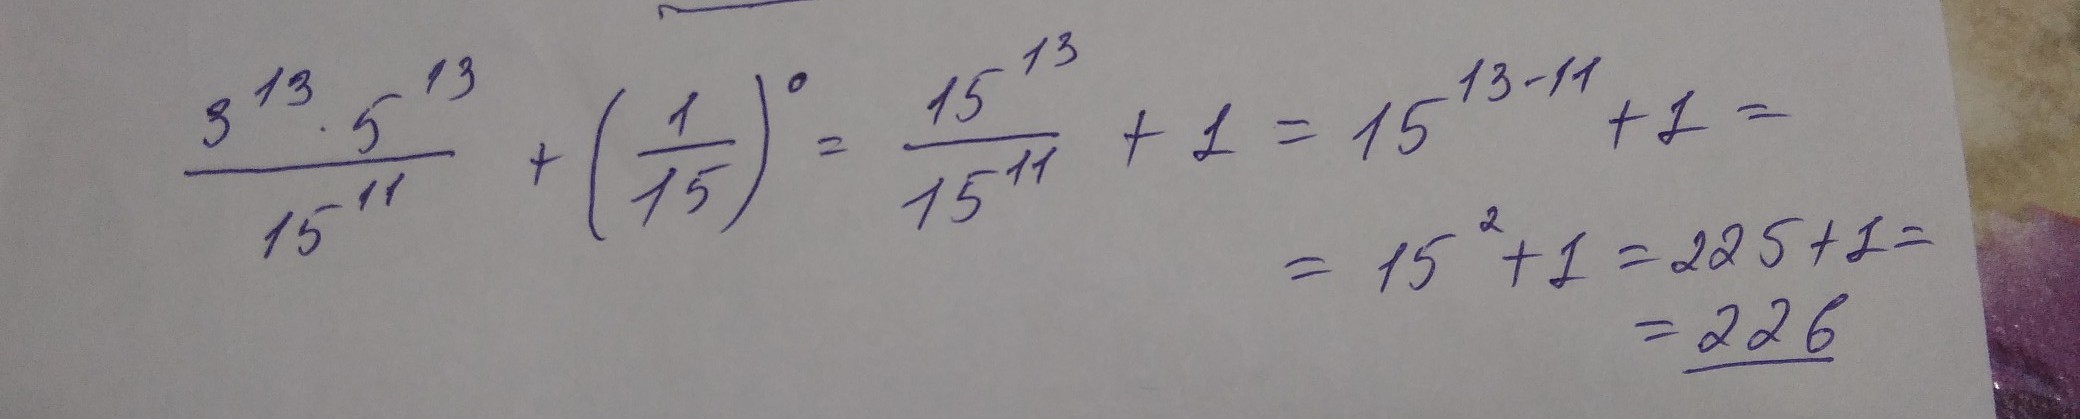 3¹³ · 5¹³ / 15¹¹ + (1/15)⁰ = 15¹³ / 15¹¹ + 1 = 15¹³⁻¹¹ + 1 =
= 15² + 1 = 225 + 1 =
= 226